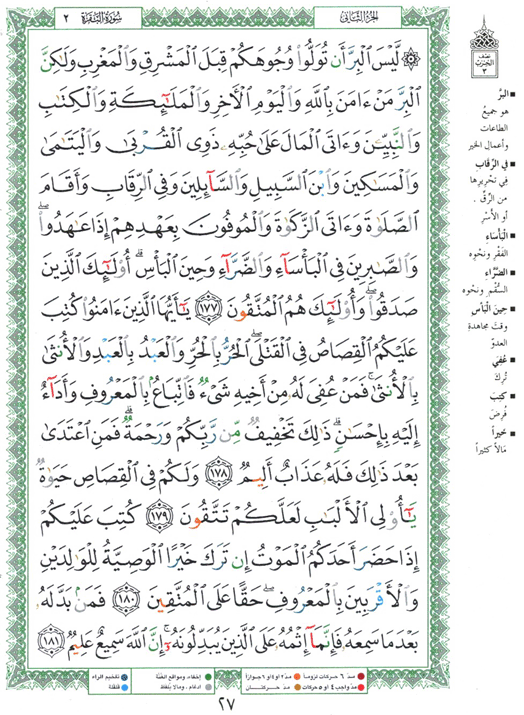 الجزء الثاني
سورة البقرة ٢
نصف الحزب ٣
لَّيْسَ ٱلْبِرَّ أَن تُوَلُّوا۟ وُجُوهَكُمْ قِبَلَ ٱلْمَشْرِقِ وَٱلْمَغْرِبِ وَلَٰكِنَّ
ٱلْبِرَّ مَنْ ءَامَنَ بِٱللَّهِ وَٱلْيَوْمِ ٱلْأَخِرِ وَٱلْمَلَٰٓئِكَةِ وَٱلْكِتَٰبِ
وَٱلنَّبِيِّۦنَ وَءَاتَى ٱلْمَالَ عَلَىٰ حُبِّهِۦ ذَوِى ٱلْقُرْبَىٰ وَٱلْيَتَٰمَىٰ
وَٱلْمَسَٰكِينَ وَٱبْنَ ٱلسَّبِيلِ وَٱلسَّآئِلِينَ وَفِى ٱلرِّقَابِ وَأَقَامَ
ٱلصَّلَوٰةَ وَءَاتَى ٱلزَّكَوٰةَ وَٱلْمُوفُونَ بِعَهْدِهِمْ إِذَا عَٰهَدُوا۟ۖ
وَٱلصَّٰبِرِينَ فِى ٱلْبَأْسَآءِ وَٱلضَّرَّآءِ وَحِينَ ٱلْبَأْسِۗ أُو۟لَٰٓئِكَ ٱلَّذِينَ
صَدَقُوا۟ۖ وَأُو۟لَٰٓئِكَ هُمُ ٱلْمُتَّقُونَ ١٧٧ يَٰٓأَيُّهَا ٱلَّذِينَ ءَامَنُوا۟ كُتِبَ
عَلَيْكُمُ ٱلْقِصَاصُ فِى ٱلْقَتْلَىۖ ٱلْحُرُّ بِٱلْحُرِّ وَٱلْعَبْدُ بِٱلْعَبْدِ وَٱلْأُنثَىٰ
بِٱلْأُنثَىٰۚ فَمَنْ عُفِىَ لَهُۥ مِنْ أَخِيهِ شَىْءٌ فَٱتِّبَاعٌۢ بِٱلْمَعْرُوفِ وَأَدَآءٌ
إِلَيْهِ بِإِحْسَٰنٍۗ ذَٰلِكَ تَخْفِيفٌ مِّن رَّبِّكُمْ وَرَحْمَةٌۗ فَمَنِ ٱعْتَدَىٰ
بَعْدَ ذَٰلِكَ فَلَهُۥ عَذَابٌ أَلِيمٌ ١٧٨ وَلَكُمْ فِى ٱلْقِصَاصِ حَيَوٰةٌ
يَٰٓأُو۟لِى ٱلْأَلْبَٰبِ لَعَلَّكُمْ تَتَّقُونَ ١٧٩ كُتِبَ عَلَيْكُمْ
إِذَا حَضَرَ أَحَدَكُمُ ٱلْمَوْتُ إِن تَرَكَ خَيْرًا ٱلْوَصِيَّةُ لِلْوَٰلِدَيْنِ
وَٱلْأَقْرَبِينَ بِٱلْمَعْرُوفِۖ حَقًّا عَلَى ٱلْمُتَّقِينَ ١٨٠ فَمَنۢ بَدَّلَهُۥ
بَعْدَمَا سَمِعَهُۥ فَإِنَّمَآ إِثْمُهُۥ عَلَى ٱلَّذِينَ يُبَدِّلُونَهُۥٓۚ إِنَّ ٱللَّهَ سَمِيعٌ عَلِيمٌ ١٨١
البرَّ
هو جميعُ
الطاعات
وأعمال الخير
في الرِّقاب
في تحريرها
من الرِّق
أو الأسْرِ
البأساء
الفقرِ ونحوه
الضَّرَّاء
السُّقم ونحوه
حين البأس
وقتَ مجاهدة
العدو
عُفِيَ
تُرِكَ
كُتِبَ
فُرِضَ
خيراً
مالاً كثيراً
مدّ ٦ حركات لزوماً
مدّ ٢ أو ٤ أو ٦ جوازاً
إخفاء، ومواقع الغُنَّة
تفخيم الراء
مدّ واجب ٤ أو ٥ حركات
مدّ حركتان
إدغام، وما لا يُلفظ
قلقلة
٢٧